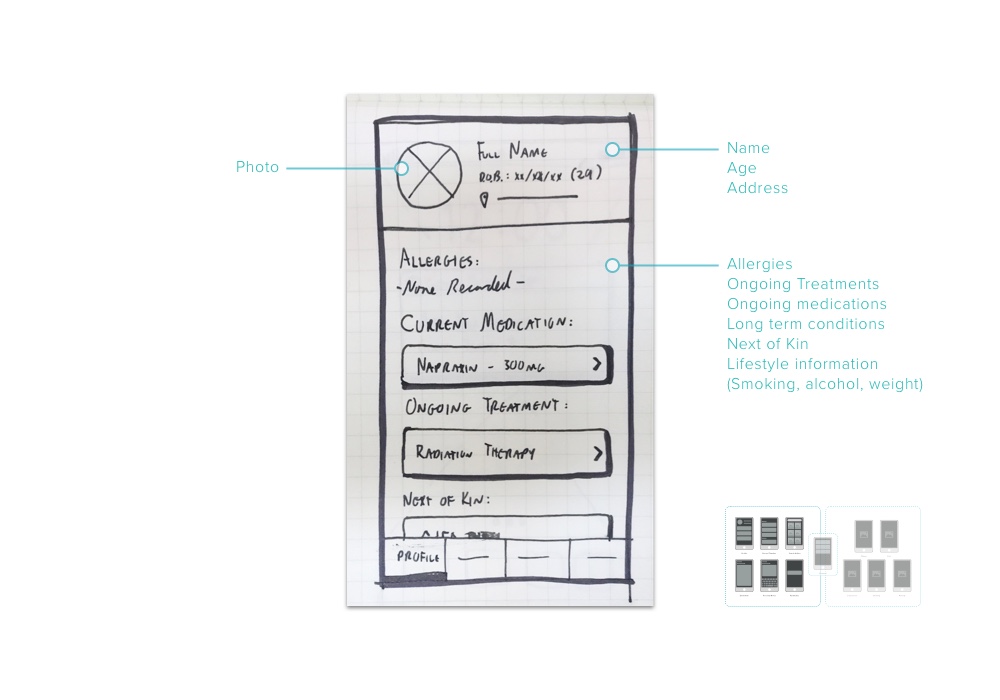 Photo
FULL NAME
D.O.B.: xx/xx/xx (29)
ALLERGIES:
-None Recorded-
CURRENT MEDICATION:
NAPRAXIN - 300MG
ONGOING TREATMENT:
RADIATION THERAPY
NEXT OF KIN:
PROFILE
Name
Age
Address
Allergies
Ongoing Treatments
Ongoing medications
Long term conditions
Next of Kin
Lifestyle information
(Smoking, alcohol, weight)